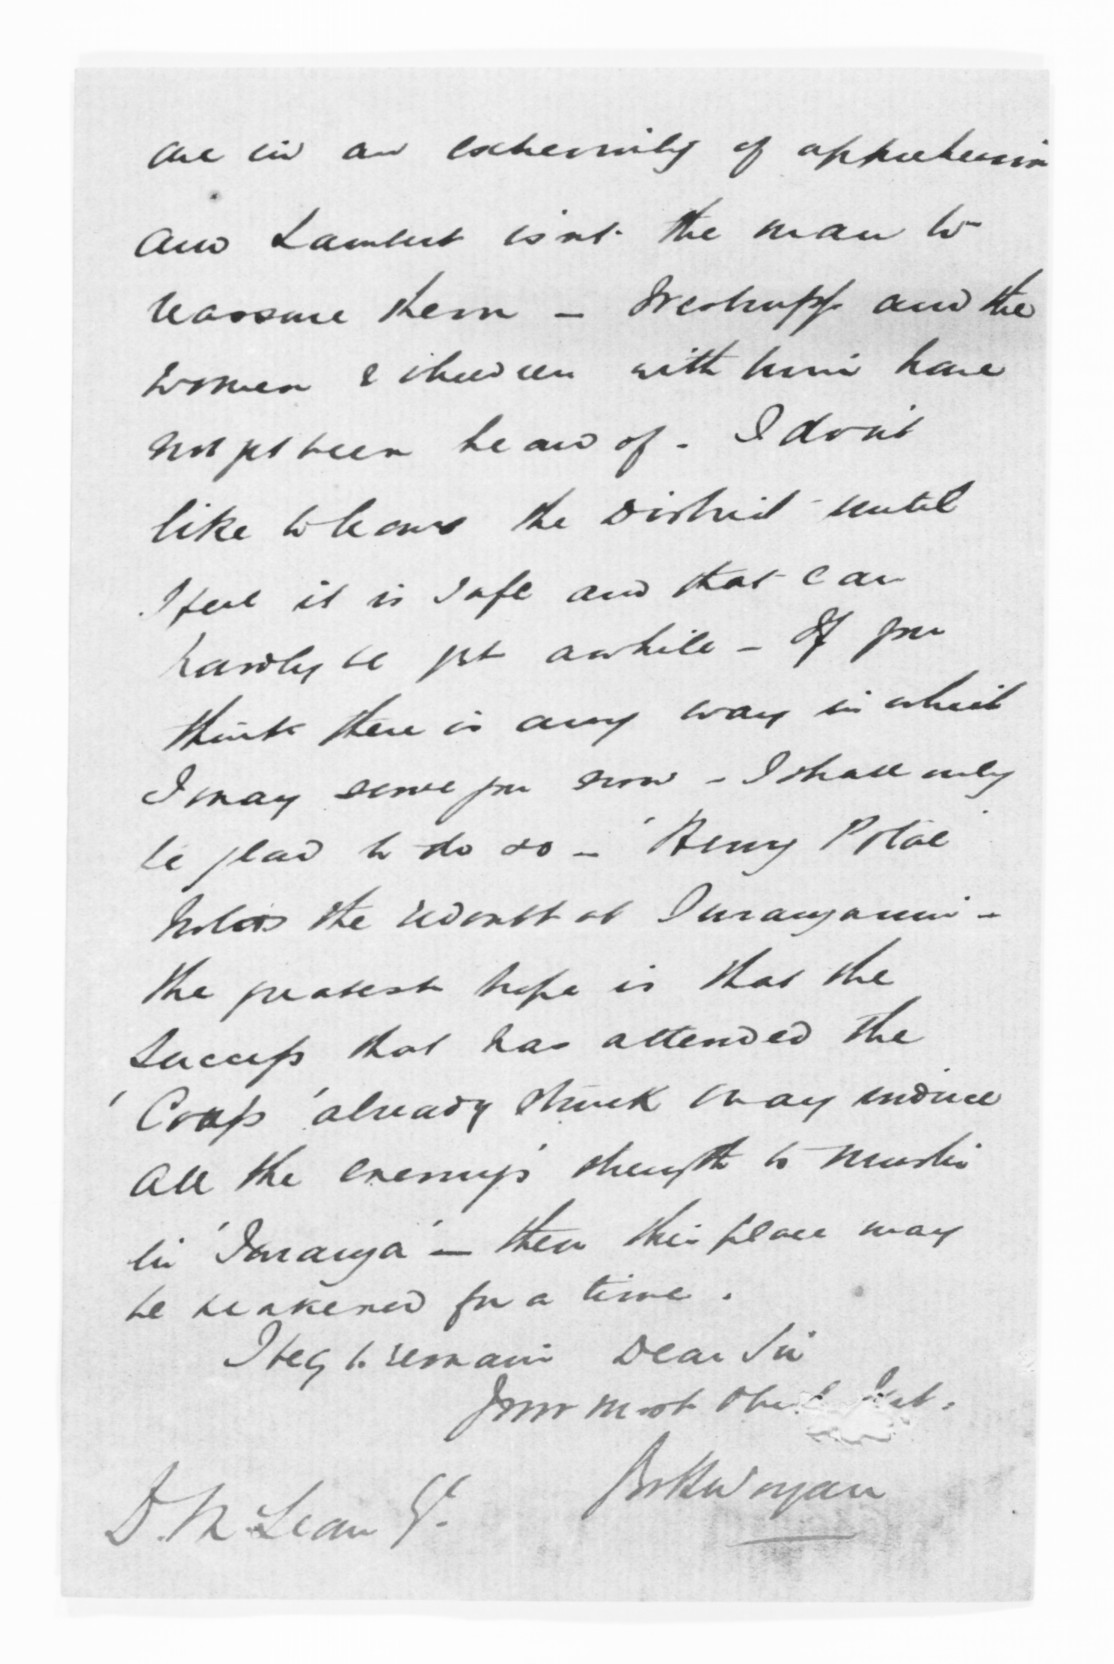 are in an extremity of apprehension
and Lambert isn't the man to
reassure them – Westrupp and the
women & children with him have
not yet been heard of. I don't
like to leave the District until
I feel it is safe and that can
hardly be yet awhile – If you
think there is any way in which
I may serve you now – I shall only
be glad to do so – 'Henry Potae'
holds the redoubt at Turanganui –
the greatest hope is that the
success that has attended the
'Coup' already struck may induce
all the enemy's strength to muster
in 'Turanga' – then this place may
be weakened for a time.
I beg to remain Dear Sir
Your most Obedt Sevt.
D. McLean Esq.